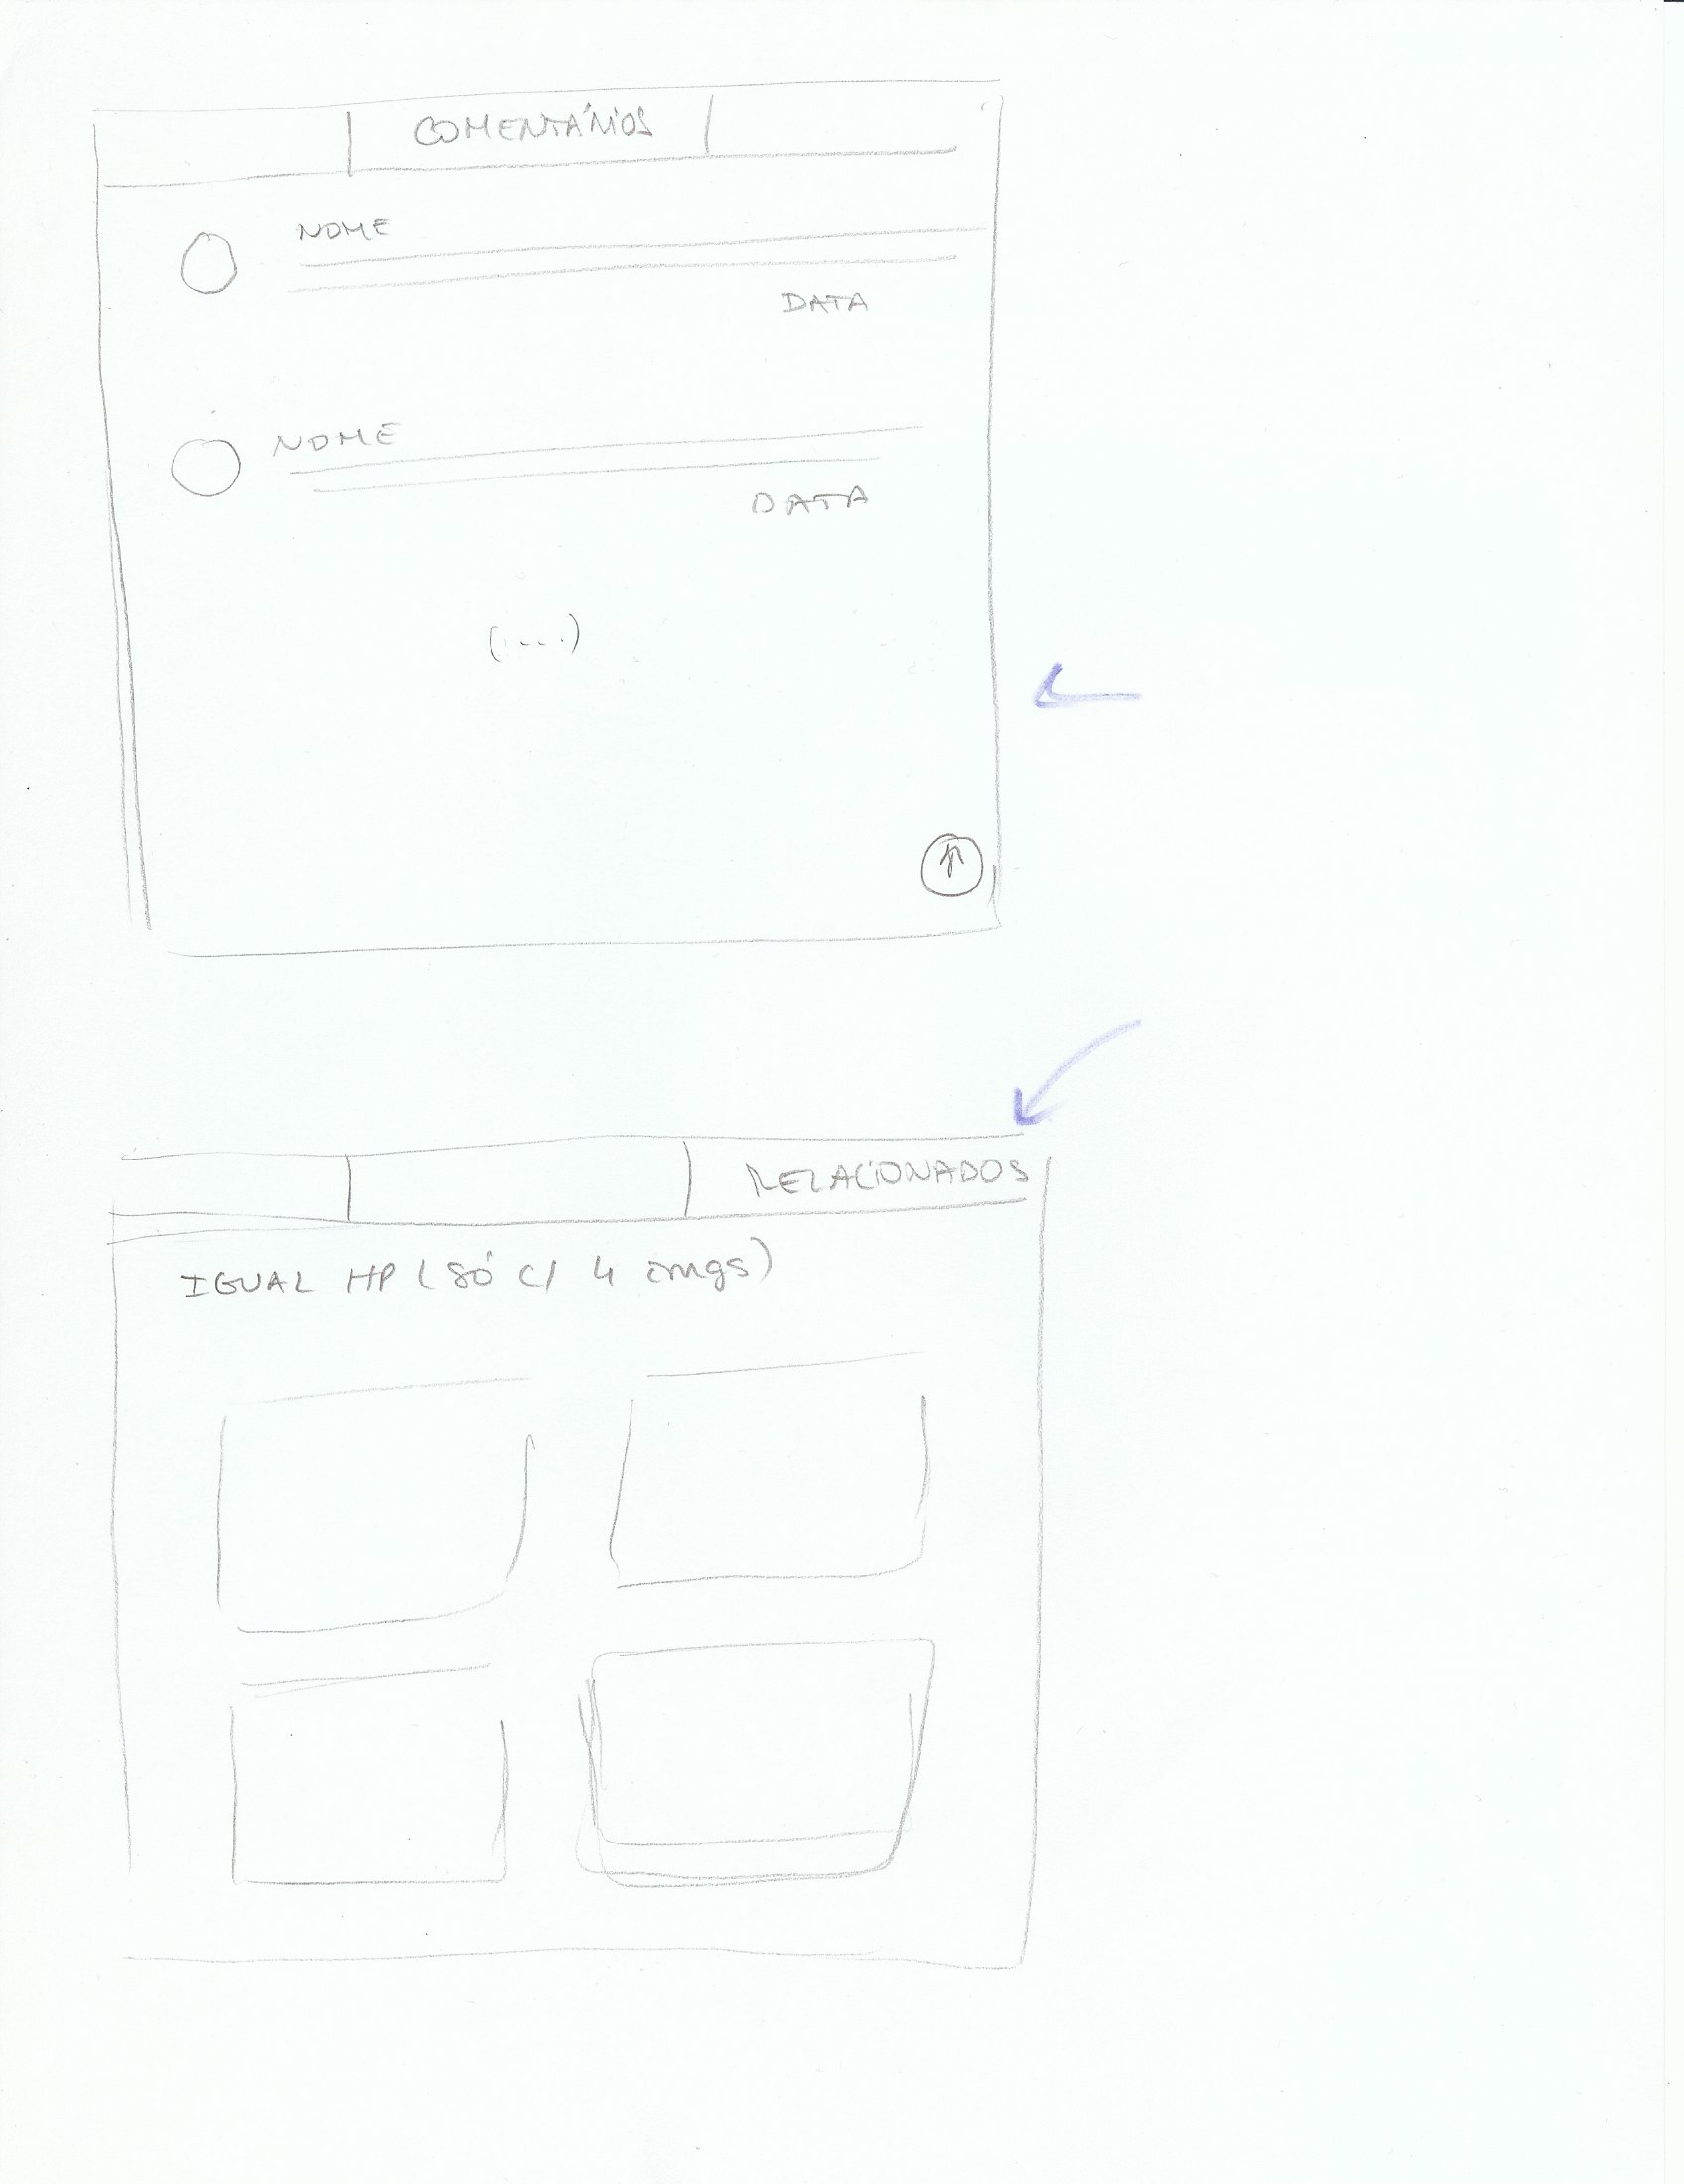 COMENTÁRIOS
NOME
DATA
NOME
DATA
(....)
RELACIONADOS
IGUAL HP (SÓ C/ 4 imgs)